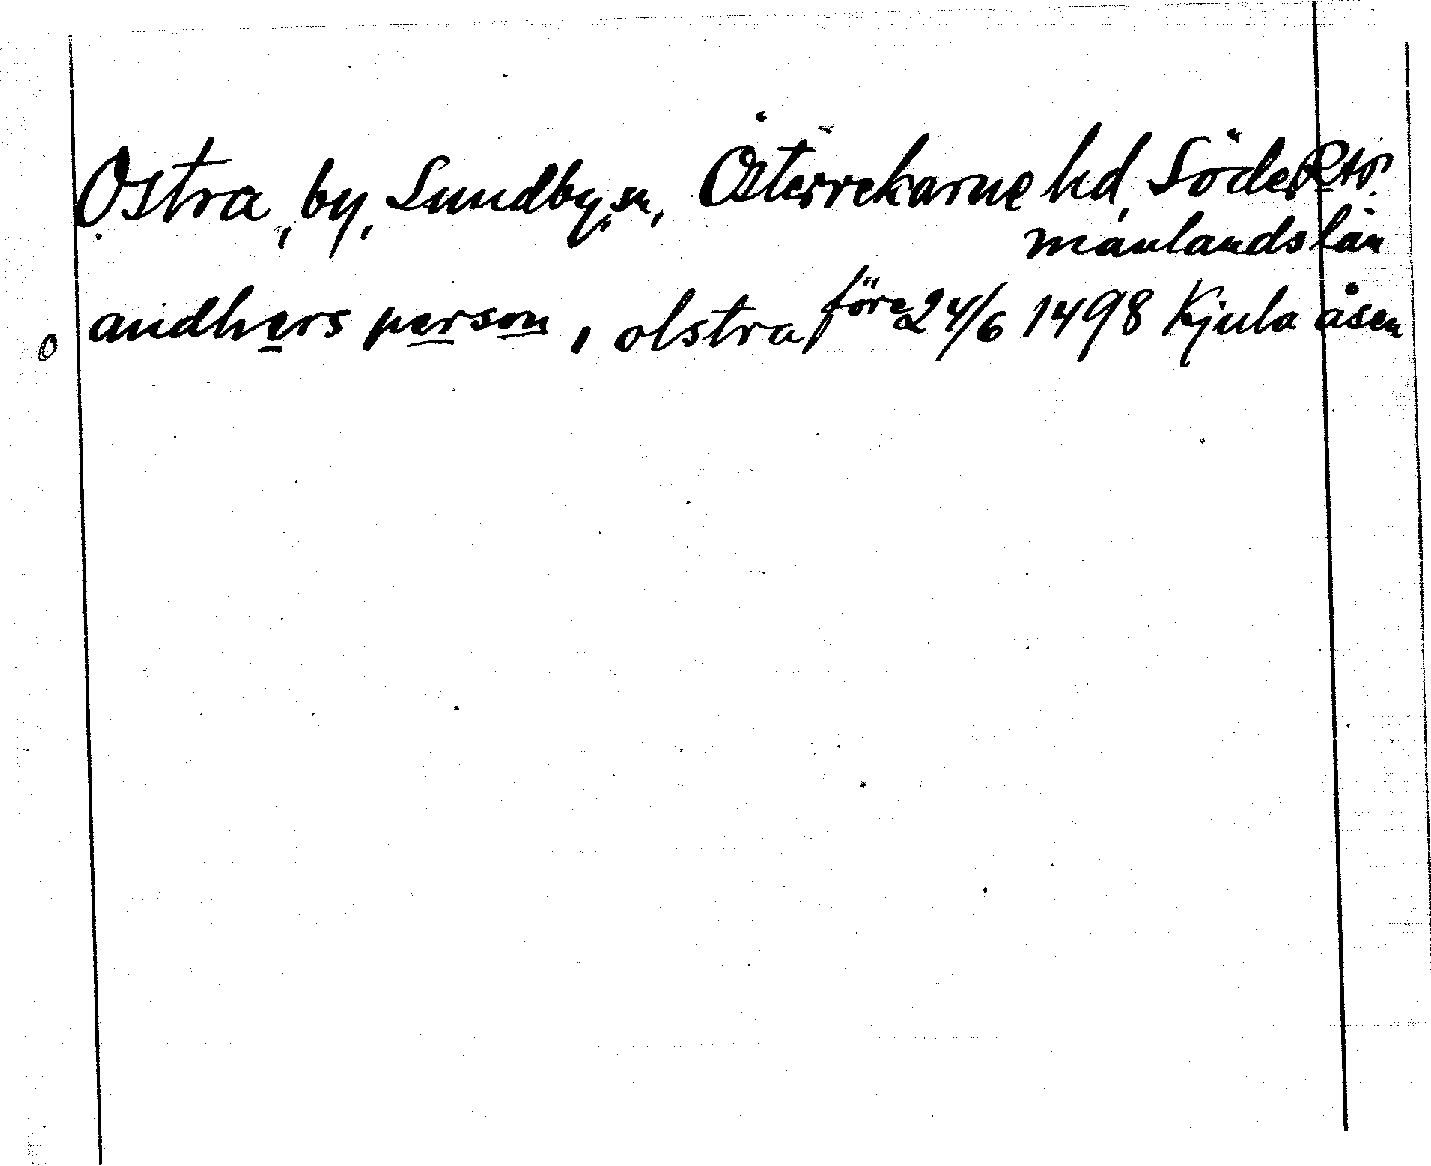 Ostra, by, Lundby, sn, Österrekarne hd, Söder RAp.
manlands län
o andhers person, olstra före 24/6 1498 Kjula åsen